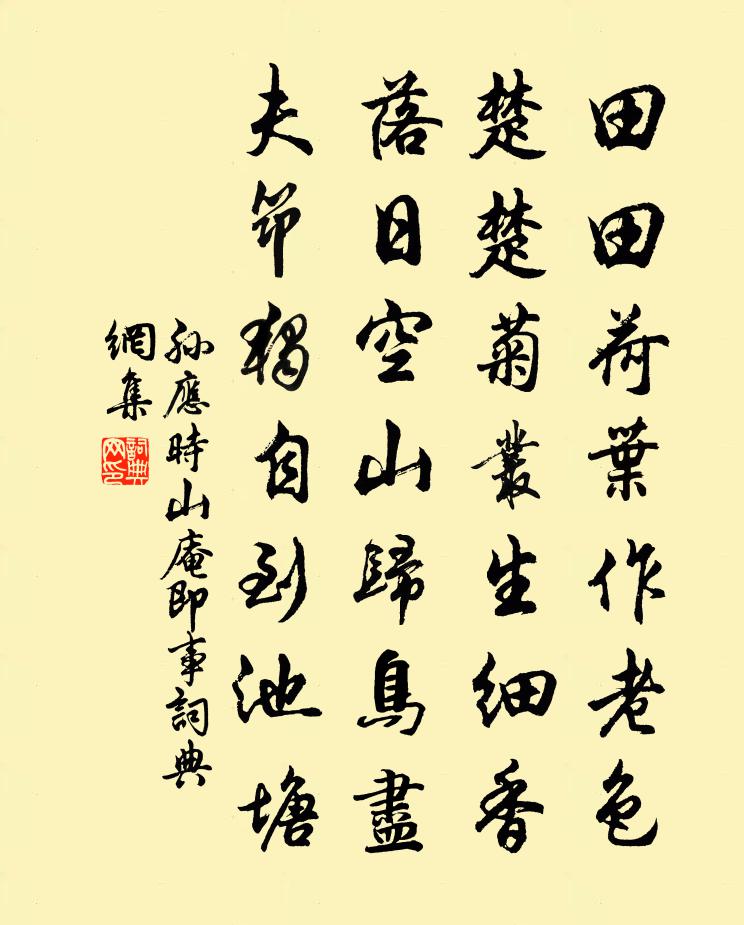 田田荷葉作老色
楚楚菊叢生細香
落日空山歸鳥盡
夫筇獨自到池塘
孫應時山庵即事詞典
網集
詞典網印